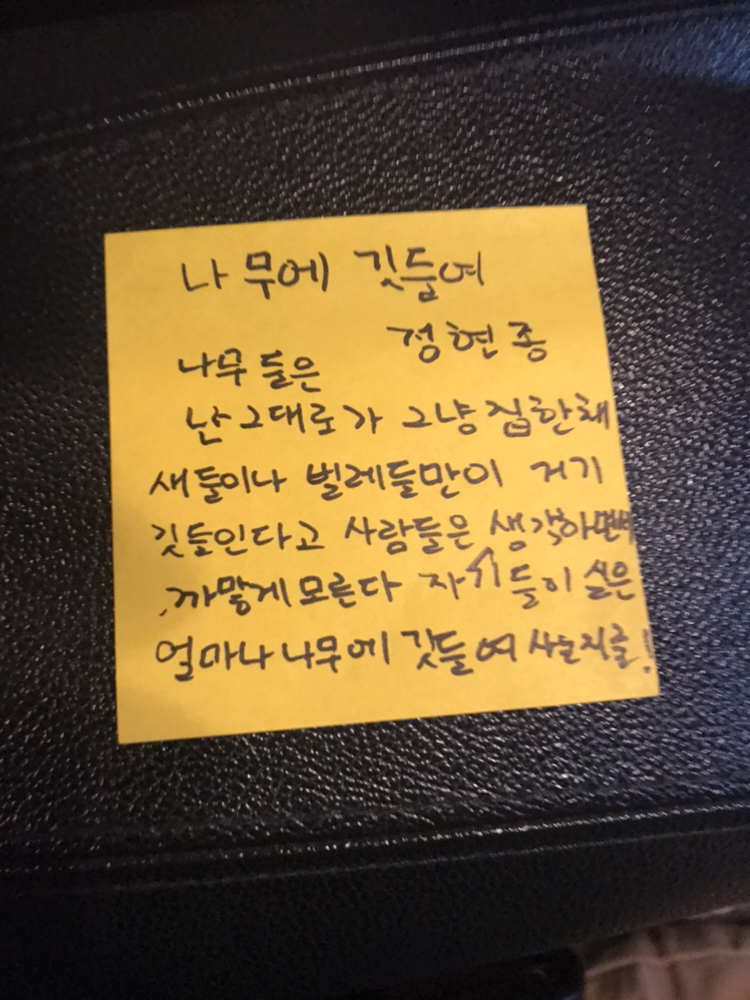 나무에 깃들여
정현종
나무들은
난 그대로가 그냥 집한채
새들이나 벌레들만이 거기
깃들인다고 사람들은 생각하면서
까맣게 모른다 자기들이 실은
얼마나 나무에 깃들여 사는지를!